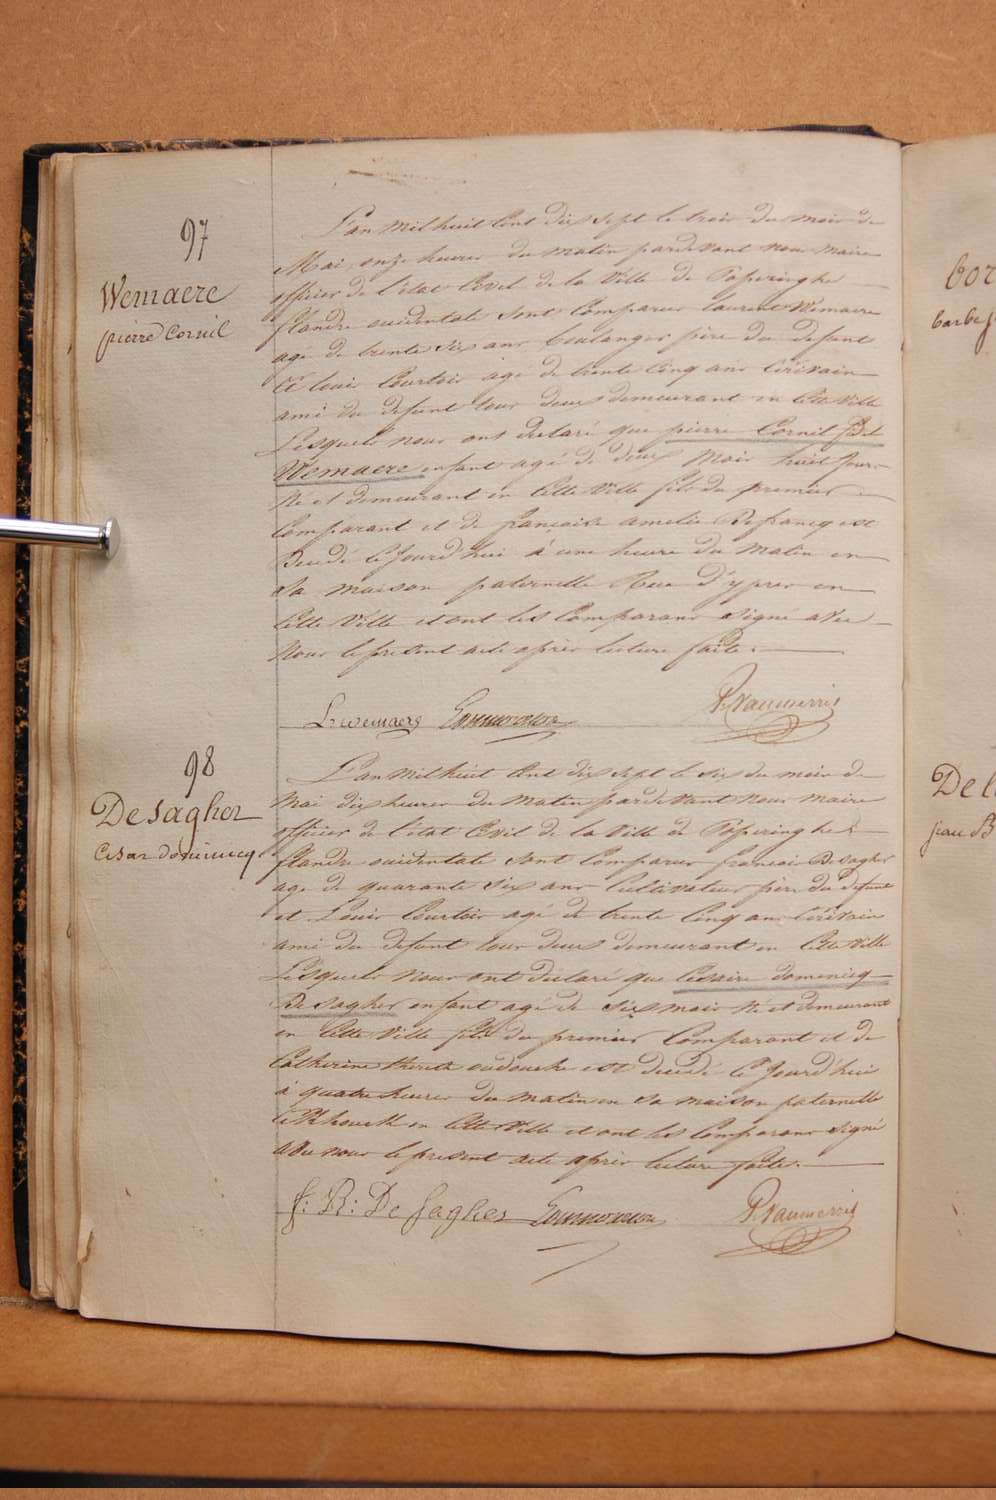 97
Wemaere
pierre Cornil
L'an mil huit Cent dix sept le trois du mois de
Mai, onze heures du matin pardevant nous maire
officier de l'état Civil de la Ville de Poperinghe
flandre occidentale sont Comparus laurent Wemaere
agé de trente six ans boulanger père du defunt
et louis Courtois agé de trente Cinq ans Ecrivain
ami du defunt tous deux demeurant en Cette Ville
Lesquels nous ont declaré que pierre Cornil
Wemaere enfant agé de deux Mois huit Jours
Né et demeurant en Cette Ville fils du premier
Comparant et de françoise amelie Defrancq est
Decedé Cejourd'hui à une heure du Matin en
Sa maison paternelle Rue D'ypres en
Cette Ville et ont les Comparans signé avec
Nous le present acte après lecture faite.
L. wemaere
P. Vanmerris
98
De sagher
Cesar dominicq
L'an mil huit Cent dix sept le six du mois de
Mai dix heures du Matin pardevant nous maire
officier de l'état Civil de la Ville de Poperinghe
flandre occidentale sont Comparus francois Desagher
age de quarante six ans Cultivateur père du defunt
et Louis Courtois agé de trente Cinq ans Ecrivain
ami du defunt tous deux demeurant en Cette Ville
Lesquels nous ont declaré que Cesaire domenicq
De sagher enfant agé de six mois Né et demeurant
en Cette Ville fils du premier Comparant et de
Catherine therese oudouche est decedé Ce Jourd'hui
à quatre heures du matin en Sa maison paternelle
en Cette Ville et ont les Comparans signé
avec nous le present acte après lecture faite.
f: R: De Sagher
P. Vanmerris
De
jean B
barbe